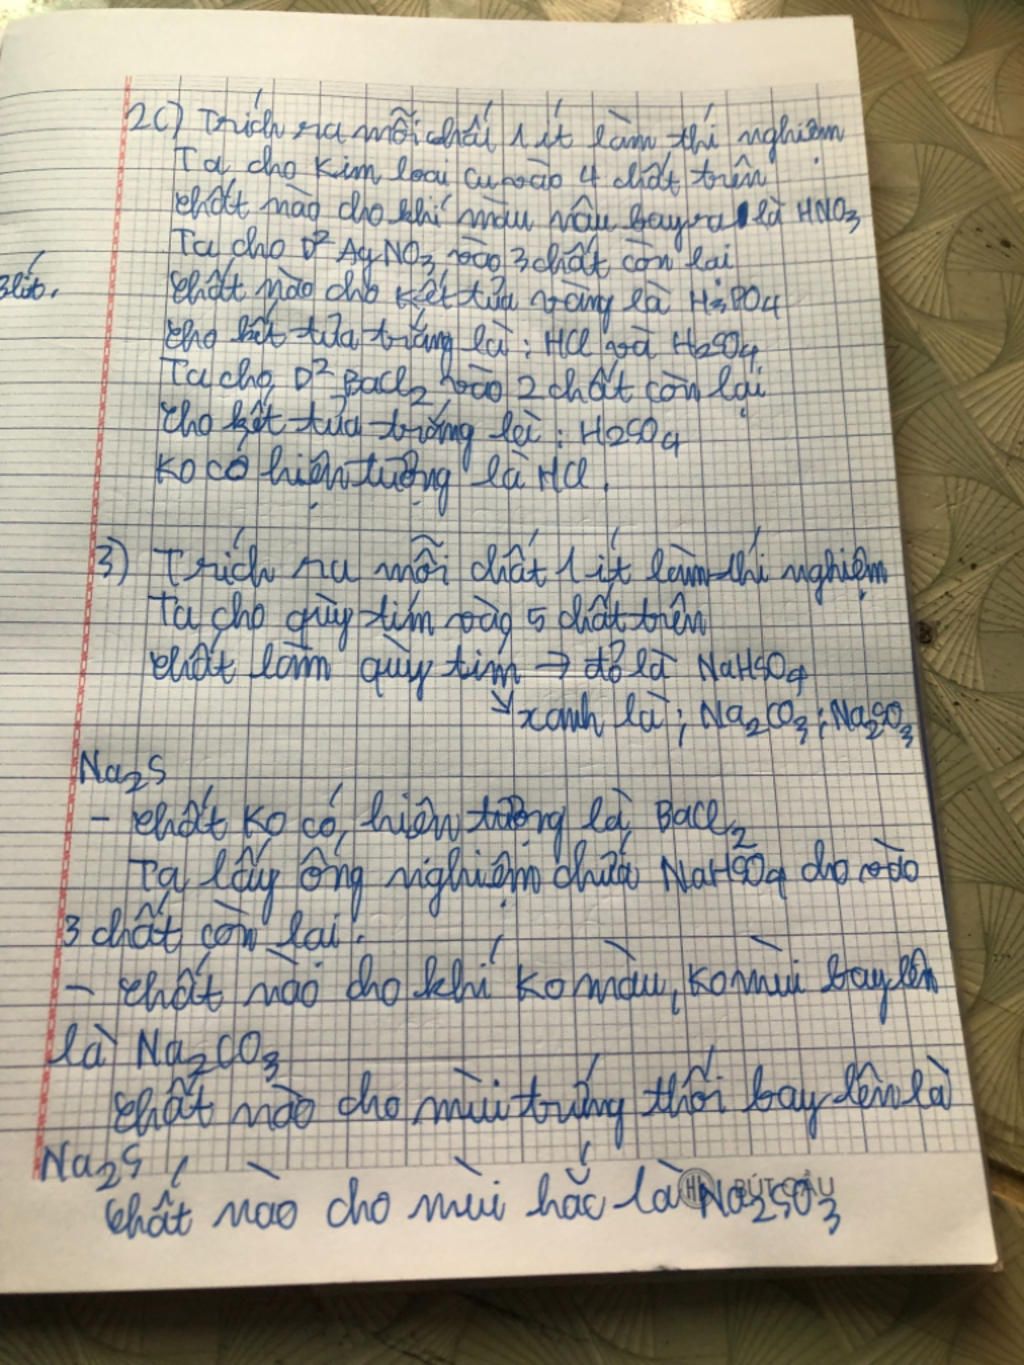 2C) Trích ra mỗi chất 1 ít làm thí nghiệm
Ta cho Kim loại Cu vào 4 chất trên
chất nào cho khí màu nâu bay ra là HNO3
Ta cho D² AgNO3 vào 3 chất còn lại
3 lít.
chất nào cho kết tủa vàng là H3PO4
cho kết tủa trắng là : HCl và H2SO4
Ta cho D² BaCl2 vào 2 chất còn lại
cho kết tủa trắng là : H2SO4
Ko có hiện tượng là HCl.
3) Trích ra mỗi chất 1 ít làm thí nghiệm
Ta cho quỳ tím vào 5 chất trên
chất làm quỳ tím → đỏ là NaHSO4
↘ xanh là ; Na2CO3 ; Na2SO3
Na2S
- chất Ko có hiện tượng là BaCl2
Ta lấy ống nghiệm chứa NaHSO4 cho vào
3 chất còn lại.
- chất nào cho khí ko màu, ko mùi bay lên
là Na2CO3
chất nào cho mùi trứng thối bay lên là
Na2S
chất nào cho mùi hắc là Na2SO3